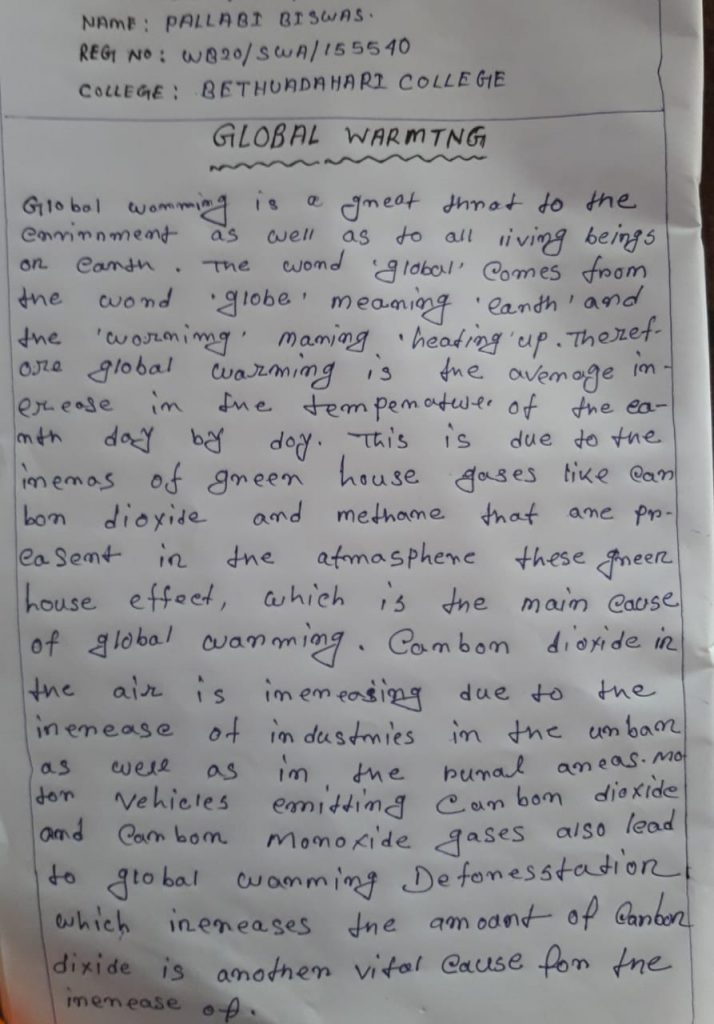 NAME: PALLABI BISWAS.
REG NO: WB20/SWA/155540
COLLEGE: BETHUADAHARI COLLEGE
GLOBAL WARMING
Global warmming is a great thrat to the
envirnnment as well as to all living beings
on earth. The word 'global' comes from
the word 'globe' meaning 'earth' and
the 'worning' maning 'heating' up. Theref-
ore global warming is the average in-
crease in the temperature of the ea-
rth day by day. This is due to the
incras of green house gases like car
bon dioxide and methane that are pr-
easent in the atmasphere these green
house effect, which is the main cause
of global warming. Carbon dioxide in
the air is increasing due to the
increase of industries in the urban
as well as in the rural areas. Mo
tor vehicles emitting carbon dioxide
and carbon monoxide gases also lead
to global warming Deforesstation
which increases the amoant of carbon
dixide is another vital cause for the
increase of.